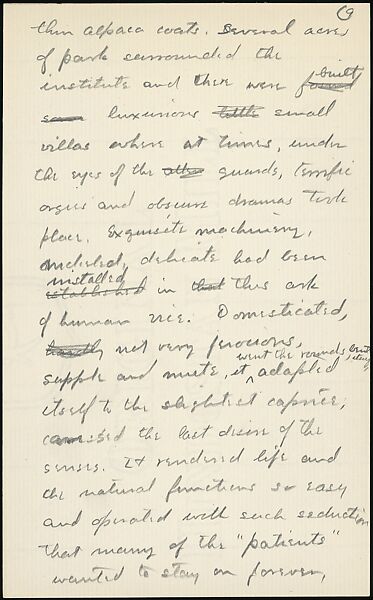 69
thin alpaca coats. Several acres
of park surrounded the
institute and there were built
luxurious small
villas where at times, under
the eyes of the guards, terrific
orgies and obscure dramas took
place. Exquisite machinery,
nickeled, delicate had been
installed
established in that this ark
of human vice. Domesticated,
hardly not very ferocious,
went the rounds
supple and mute, it adapted
itself to the slightest caprice,
caressed the last desire of the
senses. It rendered life and
the natural functions so easy
and operated with such seduction
that many of the "patients"
wanted to stay on forever,